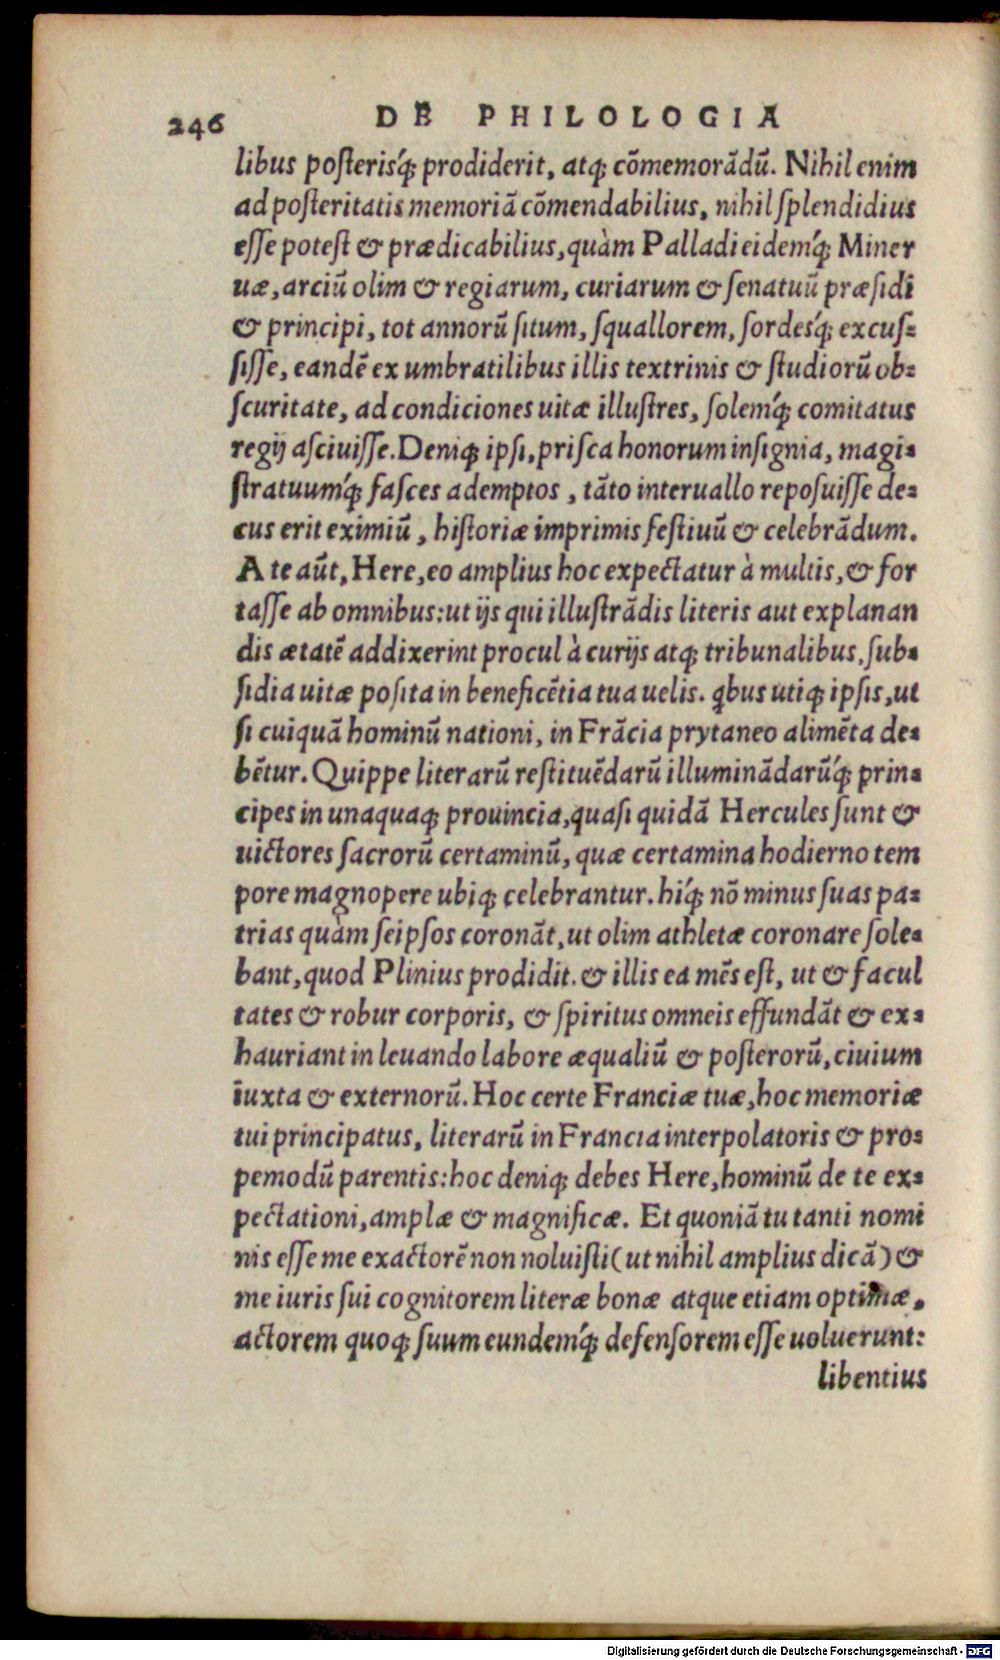 246 DE PHILOLOGIA
libus posterisq́ꝫ prodiderit, atqꝫ cōmemorādū. Nihil enim
ad posteritatis memoriā cōmendabilius, nihil splendidius
esse potest & prædicabilius, quàm Palladi eidemq́ꝫ Miner
uæ, arciū olim & regiarum, curiarum & senatuū præsidi
& principi, tot annorū situm, squallorem, sordesq́ꝫ excus⸗
sisse, eandē ex umbratilibus illis textrinis & studiorū ob⸗
scuritate, ad condiciones uitæ illustres, solemq́ꝫ comitatus
regij asciuisse. Deniqꝫ ipsi, prisca honorum insignia, magi⸗
stratuumq́ꝫ fasces ademptos, tāto interuallo reposuisse de⸗
cus erit eximiū, historiæ imprimis festiuū & celebrādum.
A te aūt, Here, eo amplius hoc expectatur à multis, & for
tasse ab omnibus: ut ijs qui illustrādis literis aut explanan
dis ætatē addixerint procul à curijs atqꝫ tribunalibus, sub⸗
sidia uitæ posita in beneficētia tua uelis. ꝗbus utiqꝫ ipsis, ut
si cuiquā hominū nationi, in Frācia prytaneo alimēta de⸗
bētur. Quippe literarū restituēdarū illuminādarūq́ꝫ prin⸗
cipes in unaquaqꝫ prouincia, quasi quidā Hercules sunt &
uictores sacrorū certaminū, quæ certamina hodierno tem
pore magnopere ubiqꝫ celebrantur. hiq́ꝫ nō minus suas pa⸗
trias quàm seipsos coronāt, ut olim athletæ coronare sole⸗
bant, quod Plinius prodidit. & illis ea mēs est, ut & facul
tates & robur corporis, & spiritus omneis effundāt & ex⸗
hauriant in leuando labore æqualiū & posterorū, ciuium
iuxta & externorū. Hoc certe Franciæ tuæ, hoc memoriæ
tui principatus, literarū in Francia interpolatoris & pro⸗
pemodū parentis: hoc deniqꝫ debes Here, hominū de te ex⸗
pectationi, amplæ & magnificæ. Et quoniā tu tanti nomi
nis esse me exactorē non noluisti (ut nihil amplius dicā) &
me iuris sui cognitorem literæ bonæ atque etiam optimæ,
actorem quoqꝫ suum eundemq́ꝫ defensorem esse uoluerunt:
libentius
Digitalisierung gefördert durch die Deutsche Forschungsgemeinschaft - DFG